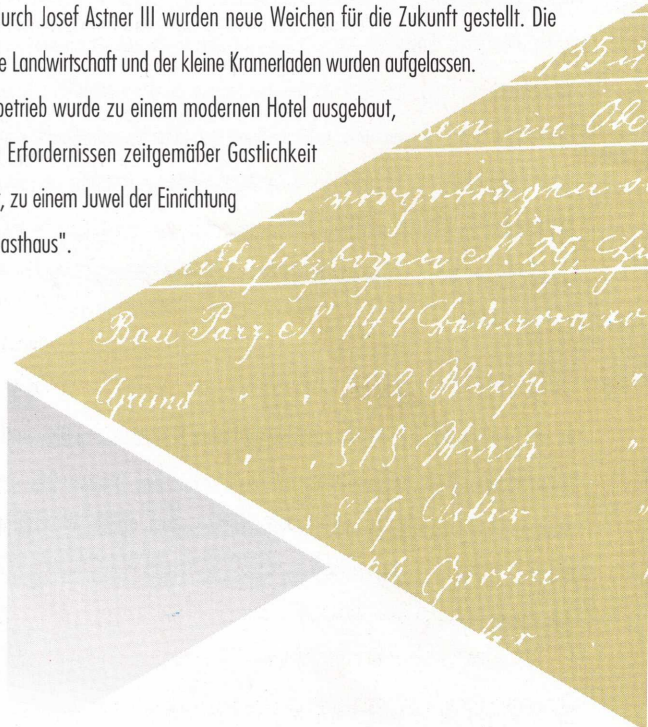 urch Josef Astner III wurden neue Weichen für die Zukunft gestellt. Die
e Landwirtschaft und der kleine Kramerladen wurden aufgelassen.
betrieb wurde zu einem modernen Hotel ausgebaut,
Erfordernissen zeitgemäßer Gastlichkeit
, zu einem Juwel der Einrichtung
asthaus".
135 u
sen in Obe
vorgetragen
besitzbogen N. 29,
Bau Parz. N. 144
Grund " " 622 Wiese "
" " 818 Wiese "
" 819 Acker "
Garten